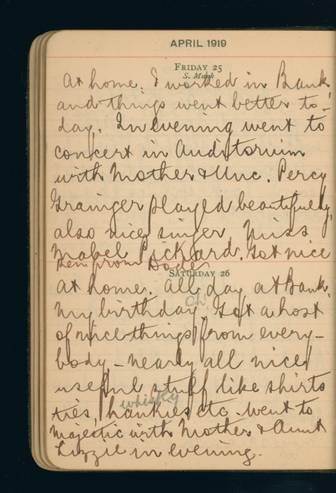 APRIL 1919
FRIDAY 25
S. Mark
At home. I worked in Bank
and things went better to-
day. In evening went to
concert in Auditorium
with Mother & Unc. Percy
Grainger played beautifully
also nice singer Miss
Mabel Pickard. Got nice
pen from Doyle
SATURDAY 26
At home. All day at Bank.
My birthday. Got a host
of nice things from every-
body - nearly all nice
useful stuff like shirts
whisky
ties, hankies etc. Went to
Majestic with Mother & Aunt
Lizzie in evening.